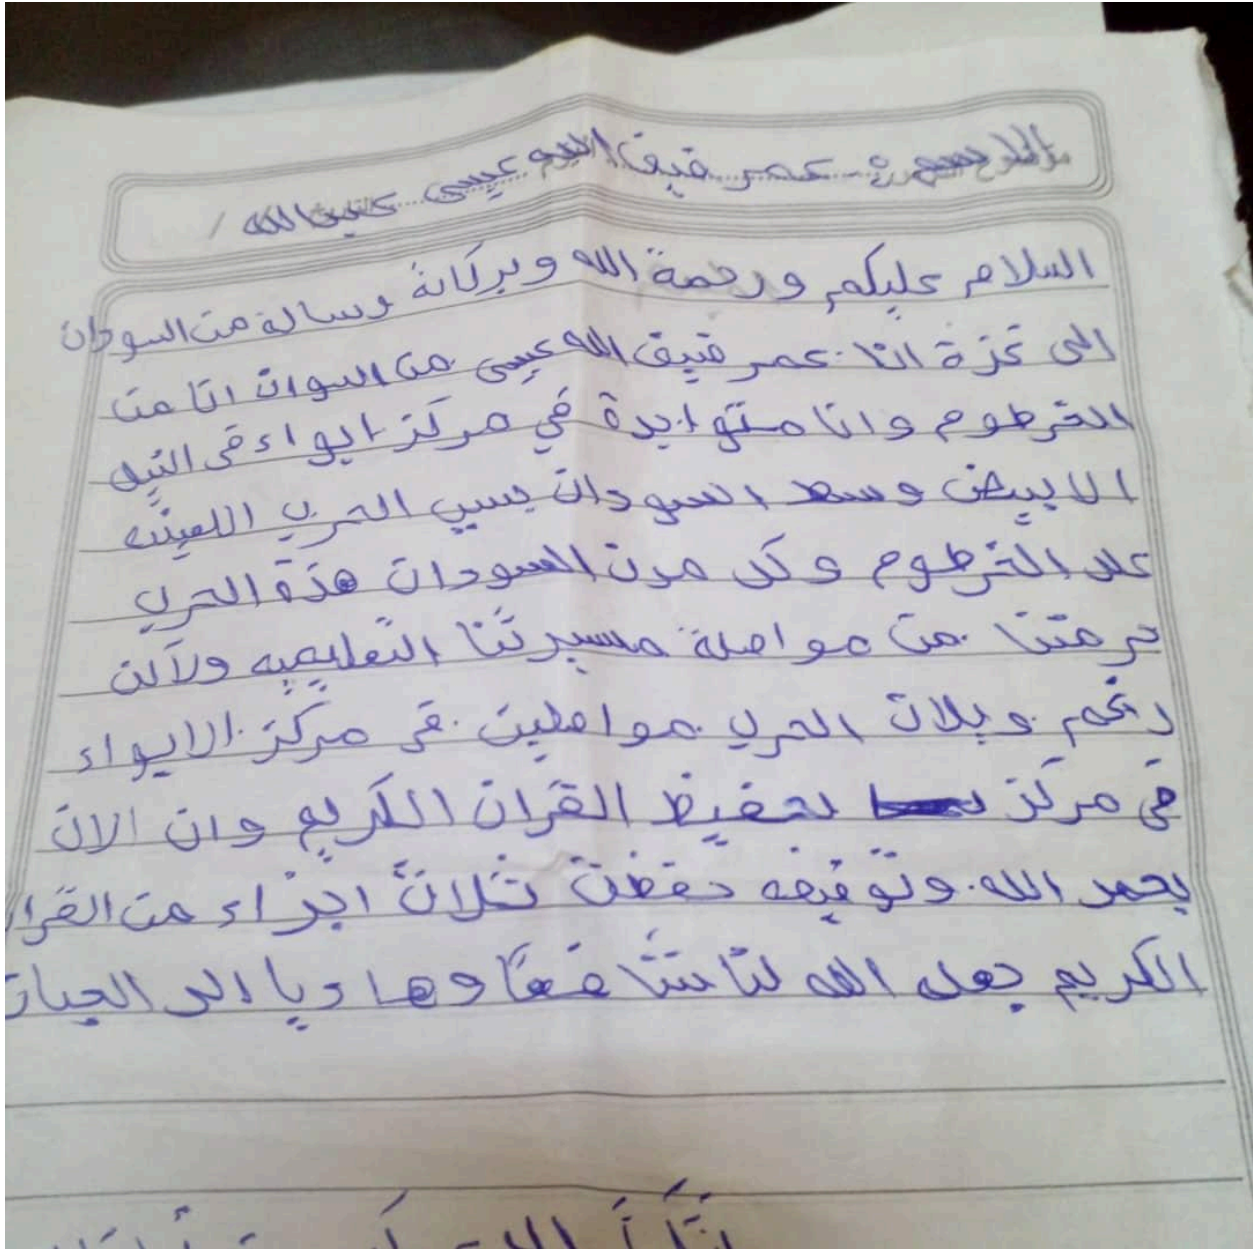 عمر ضيف الله عيسى
السلام عليكم ورحمة الله وبركاتة رسالة من السودان
الى غزة انا عمر ضيف الله عيسى من السوان انا من
الخرطوم وانا متواجدة في مركز ايواء في النيل
الابيض وسط السودان بسبب الحرب اللعينه
على الخرطوم وكل مدن السودان هذة الحرب
حرمتنا من مواصلة مسيرتنا التعليميه ولاكن
رغم ويلات الحرب مواصلين في مركز الايواء
في مركز لتحفيظ القران الكريم وان الان
بحمد الله وتوفيقه حفظت ثلاث اجزاء من القرا
الكريم جعله الله لنا شافعا وهاديا الى